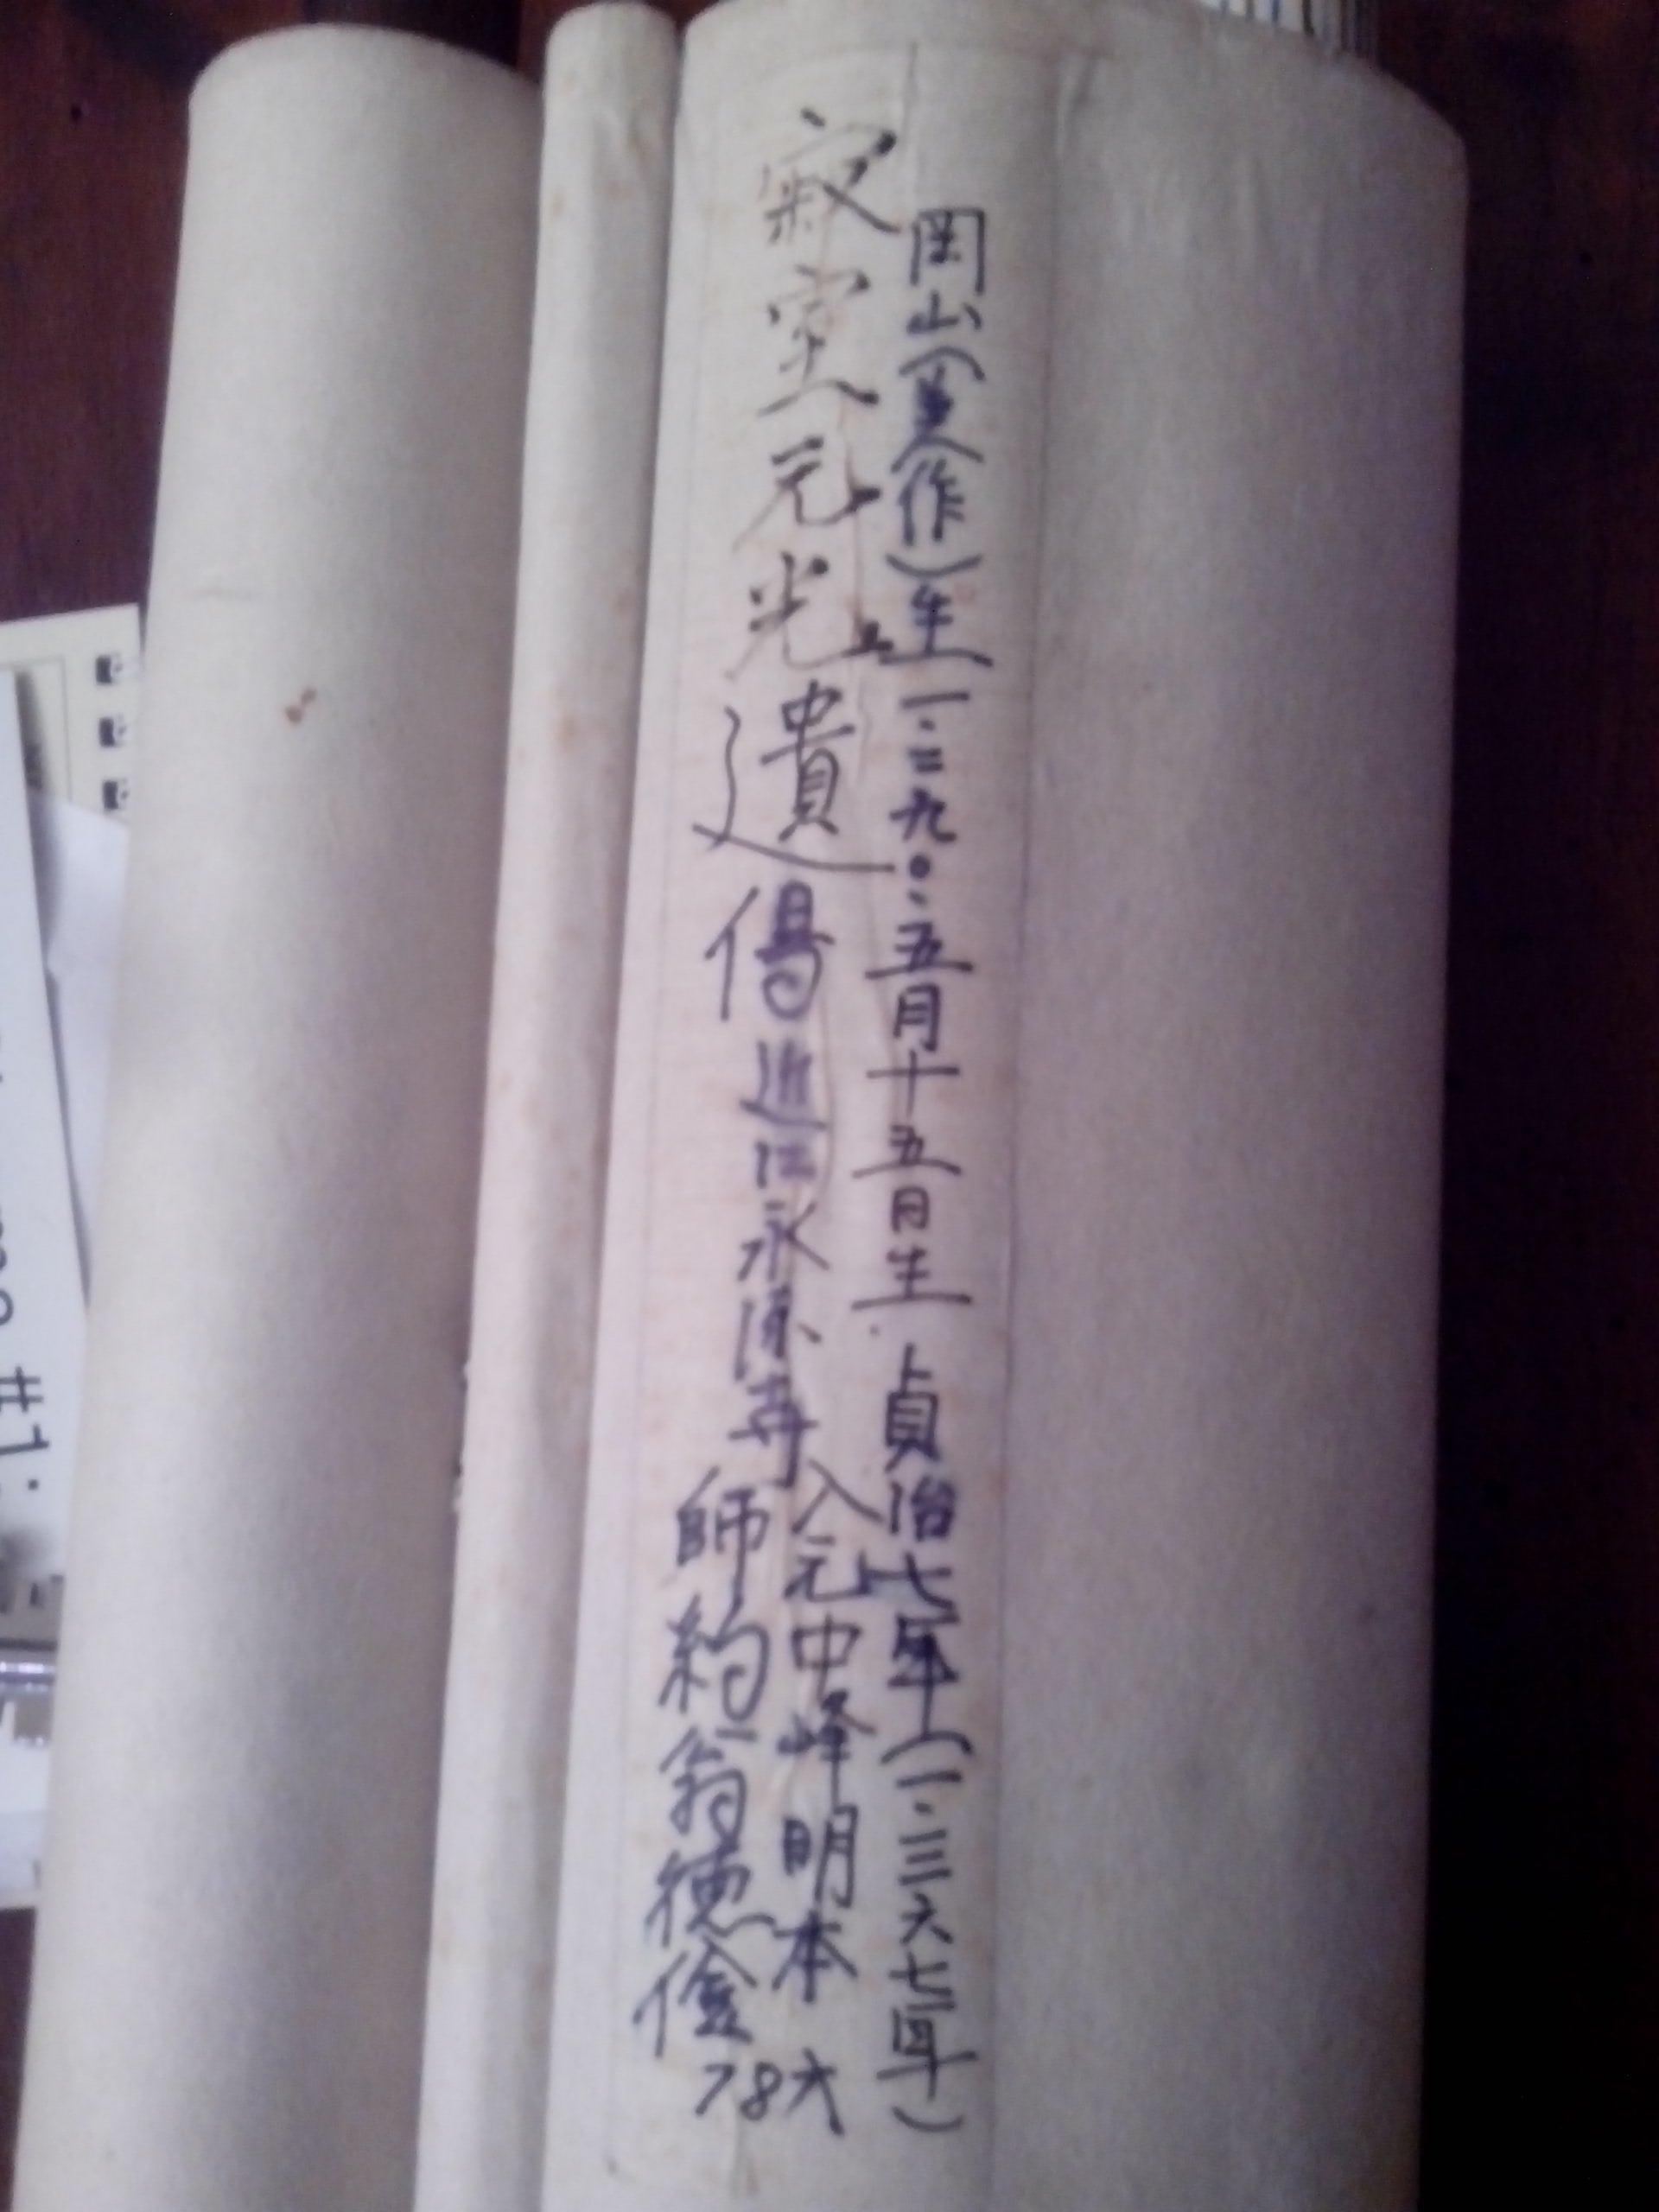 岡山(美作)生一、二九〇、五月十五日生 貞治七年(一、三六七年)
寂室元光遺偈
近江永源寺
入元中峰明本
師約翁徳儉
78才
#1.